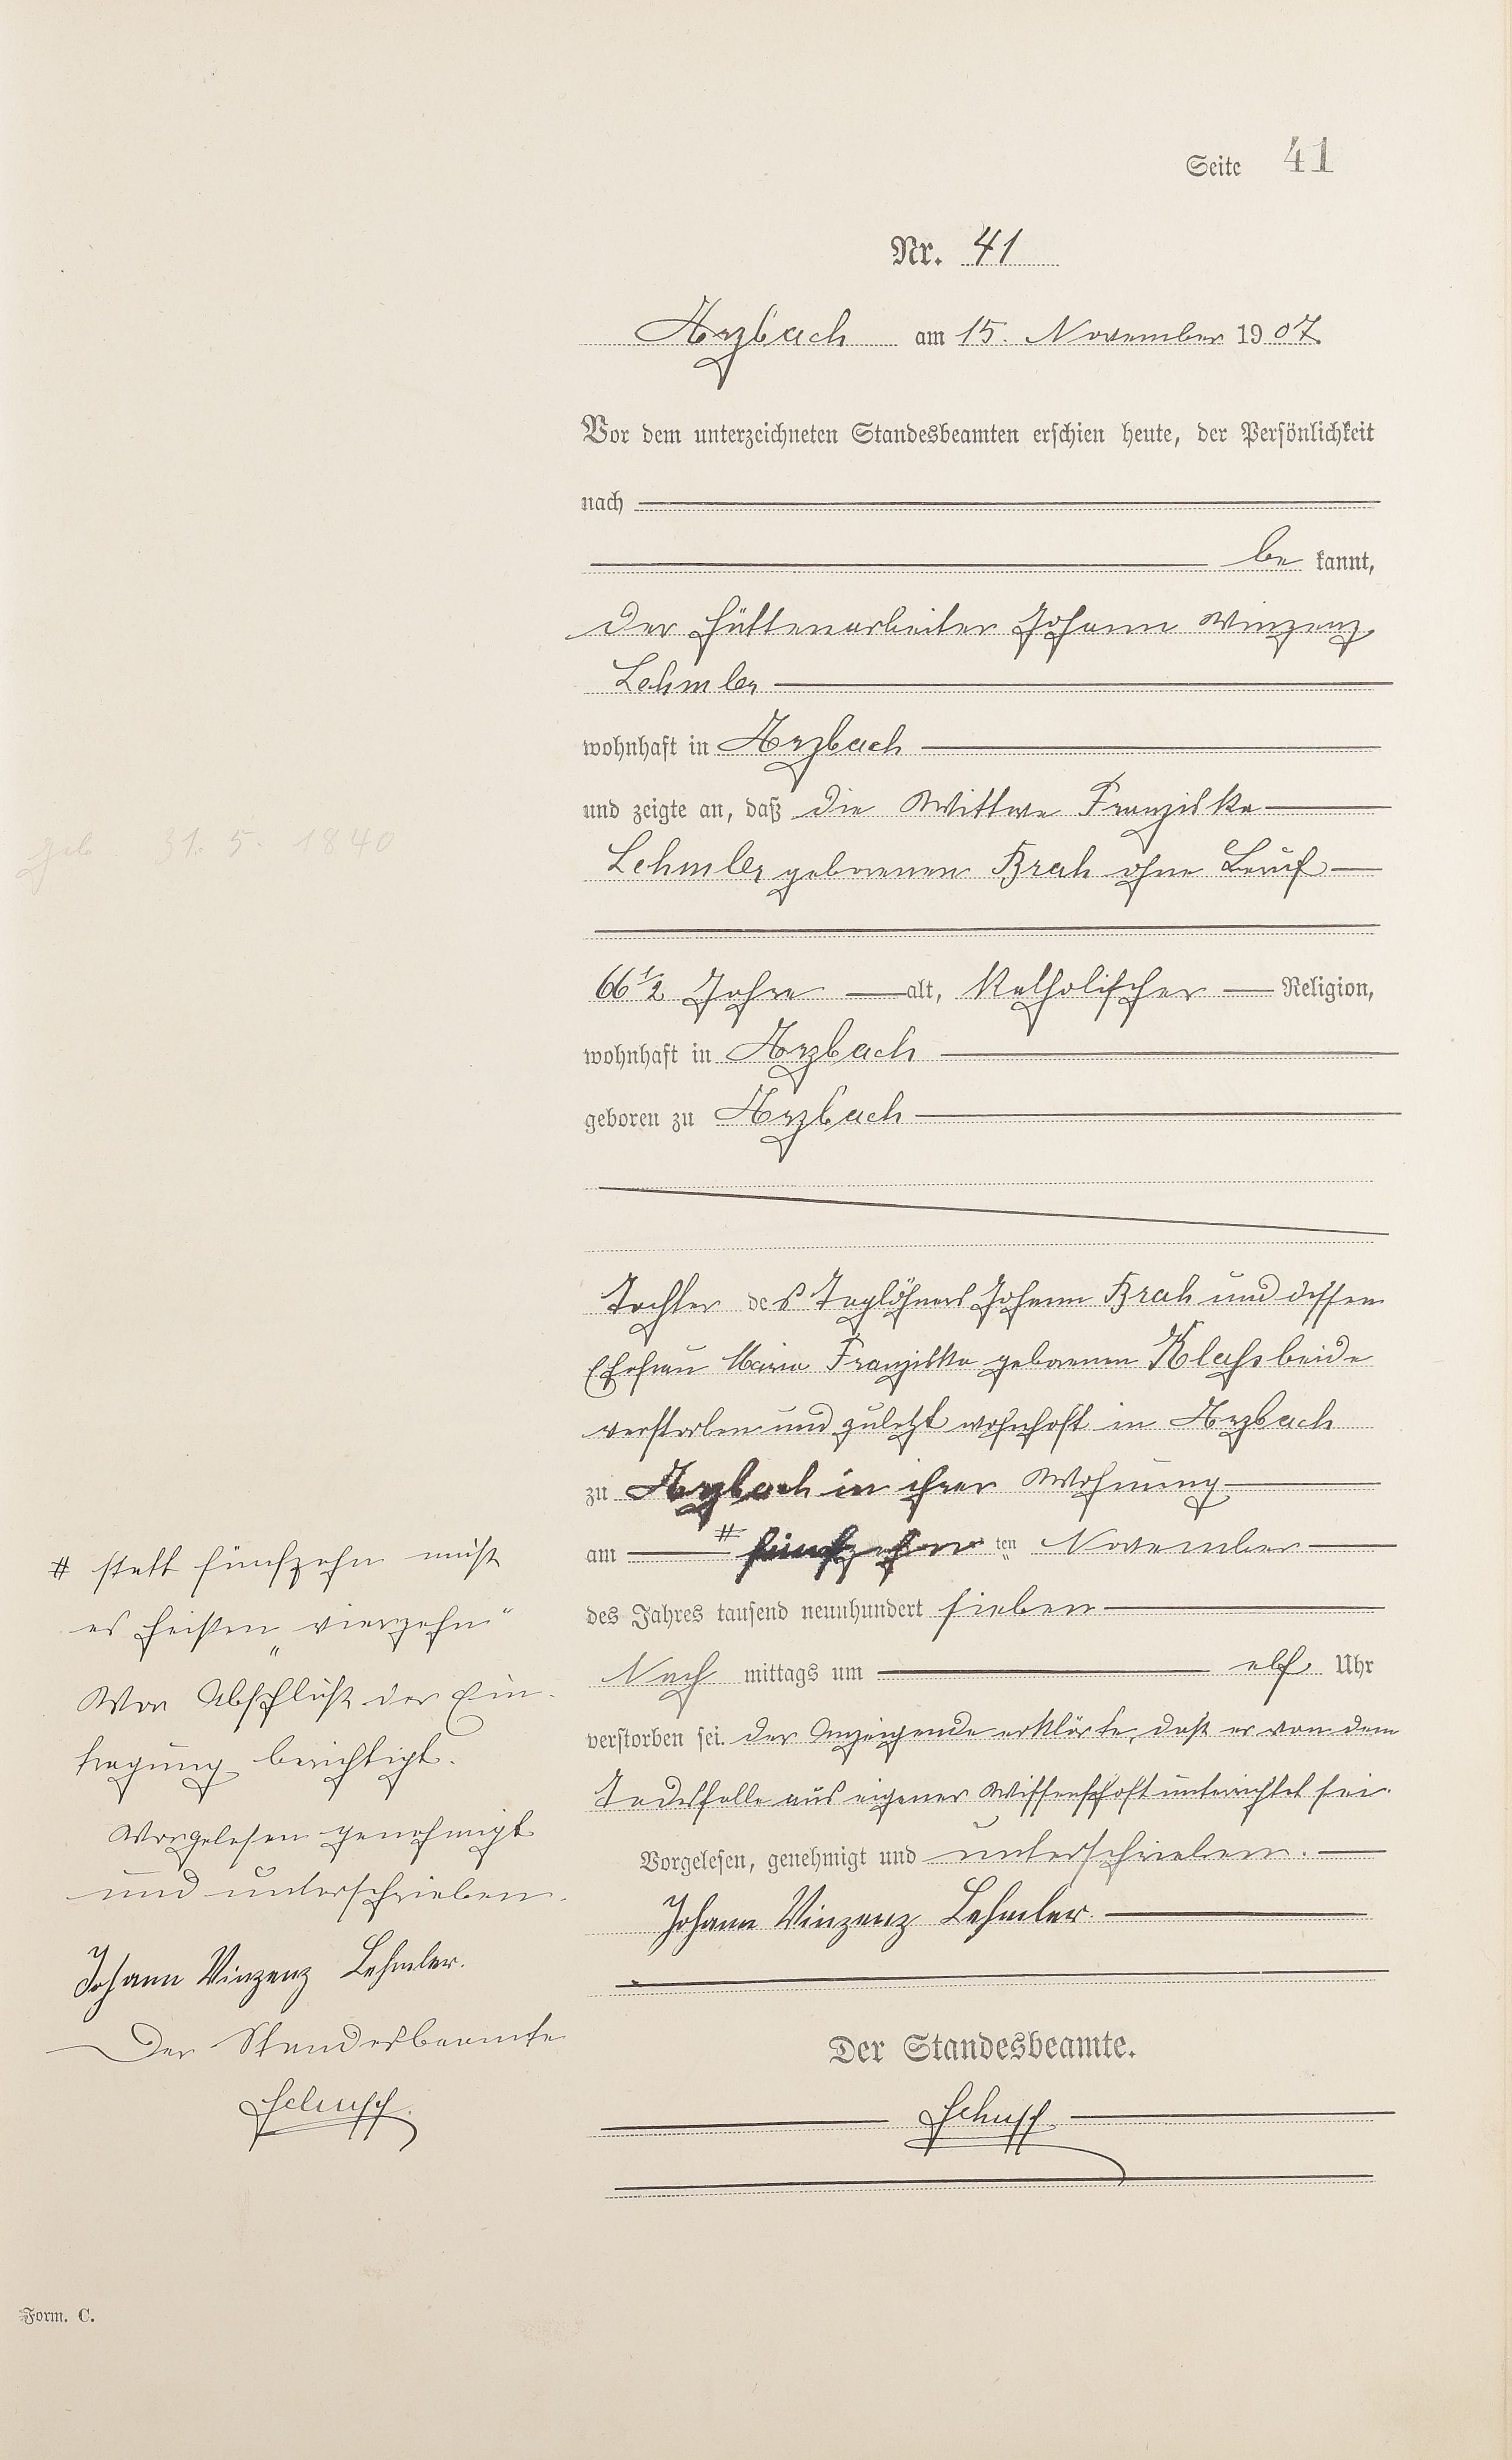 Seite 41
Nr. 41
Arzbach am 15. November 1907
Vor dem unterzeichneten Standesbeamten erschien heute, der Persönlichkeit
nach
be kannt,
der Hüttenarbeiter Johann Vinzenz
Lehmler
wohnhaft in Arzbach
und zeigte an, daß die Wittwe Franziska
Lehmler geborenen Brah ohne Beruf
66 1/2 Jahre alt, Katholischer Religion,
wohnhaft in Arzbach
geboren zu Arzbach
Tochter des Taglöhners Johann Brah und dessen
Ehefrau Maria Franziska geborenen beide
verstorben und zuletzt wohnhaft in Arzbach
zu Arzbach in ihrer Wohnung
am # fünfzehnten November
des Jahres tausend neunhundert sieben
Nach mittags um elf Uhr
verstorben sei. Der Anzeigende erklärte, daß er von dem
Todesfalle aus eigener Wissenschaft unterrichtet sei.
Vorgelesen, genehmigt und unterschrieben.
Johann Vinzenz Lehmler
Der Standesbeamte.
geb 31. 5. 1840
# statt fünfzehn muß
es heißen „vierzehn"
Vor Abschluß der Ein-
tragung berichtigt.
Vorgelesen genehmigt
und unterschrieben.
Johann Vinzenz Lehmler.
Der Standesbeamte
Form. C.